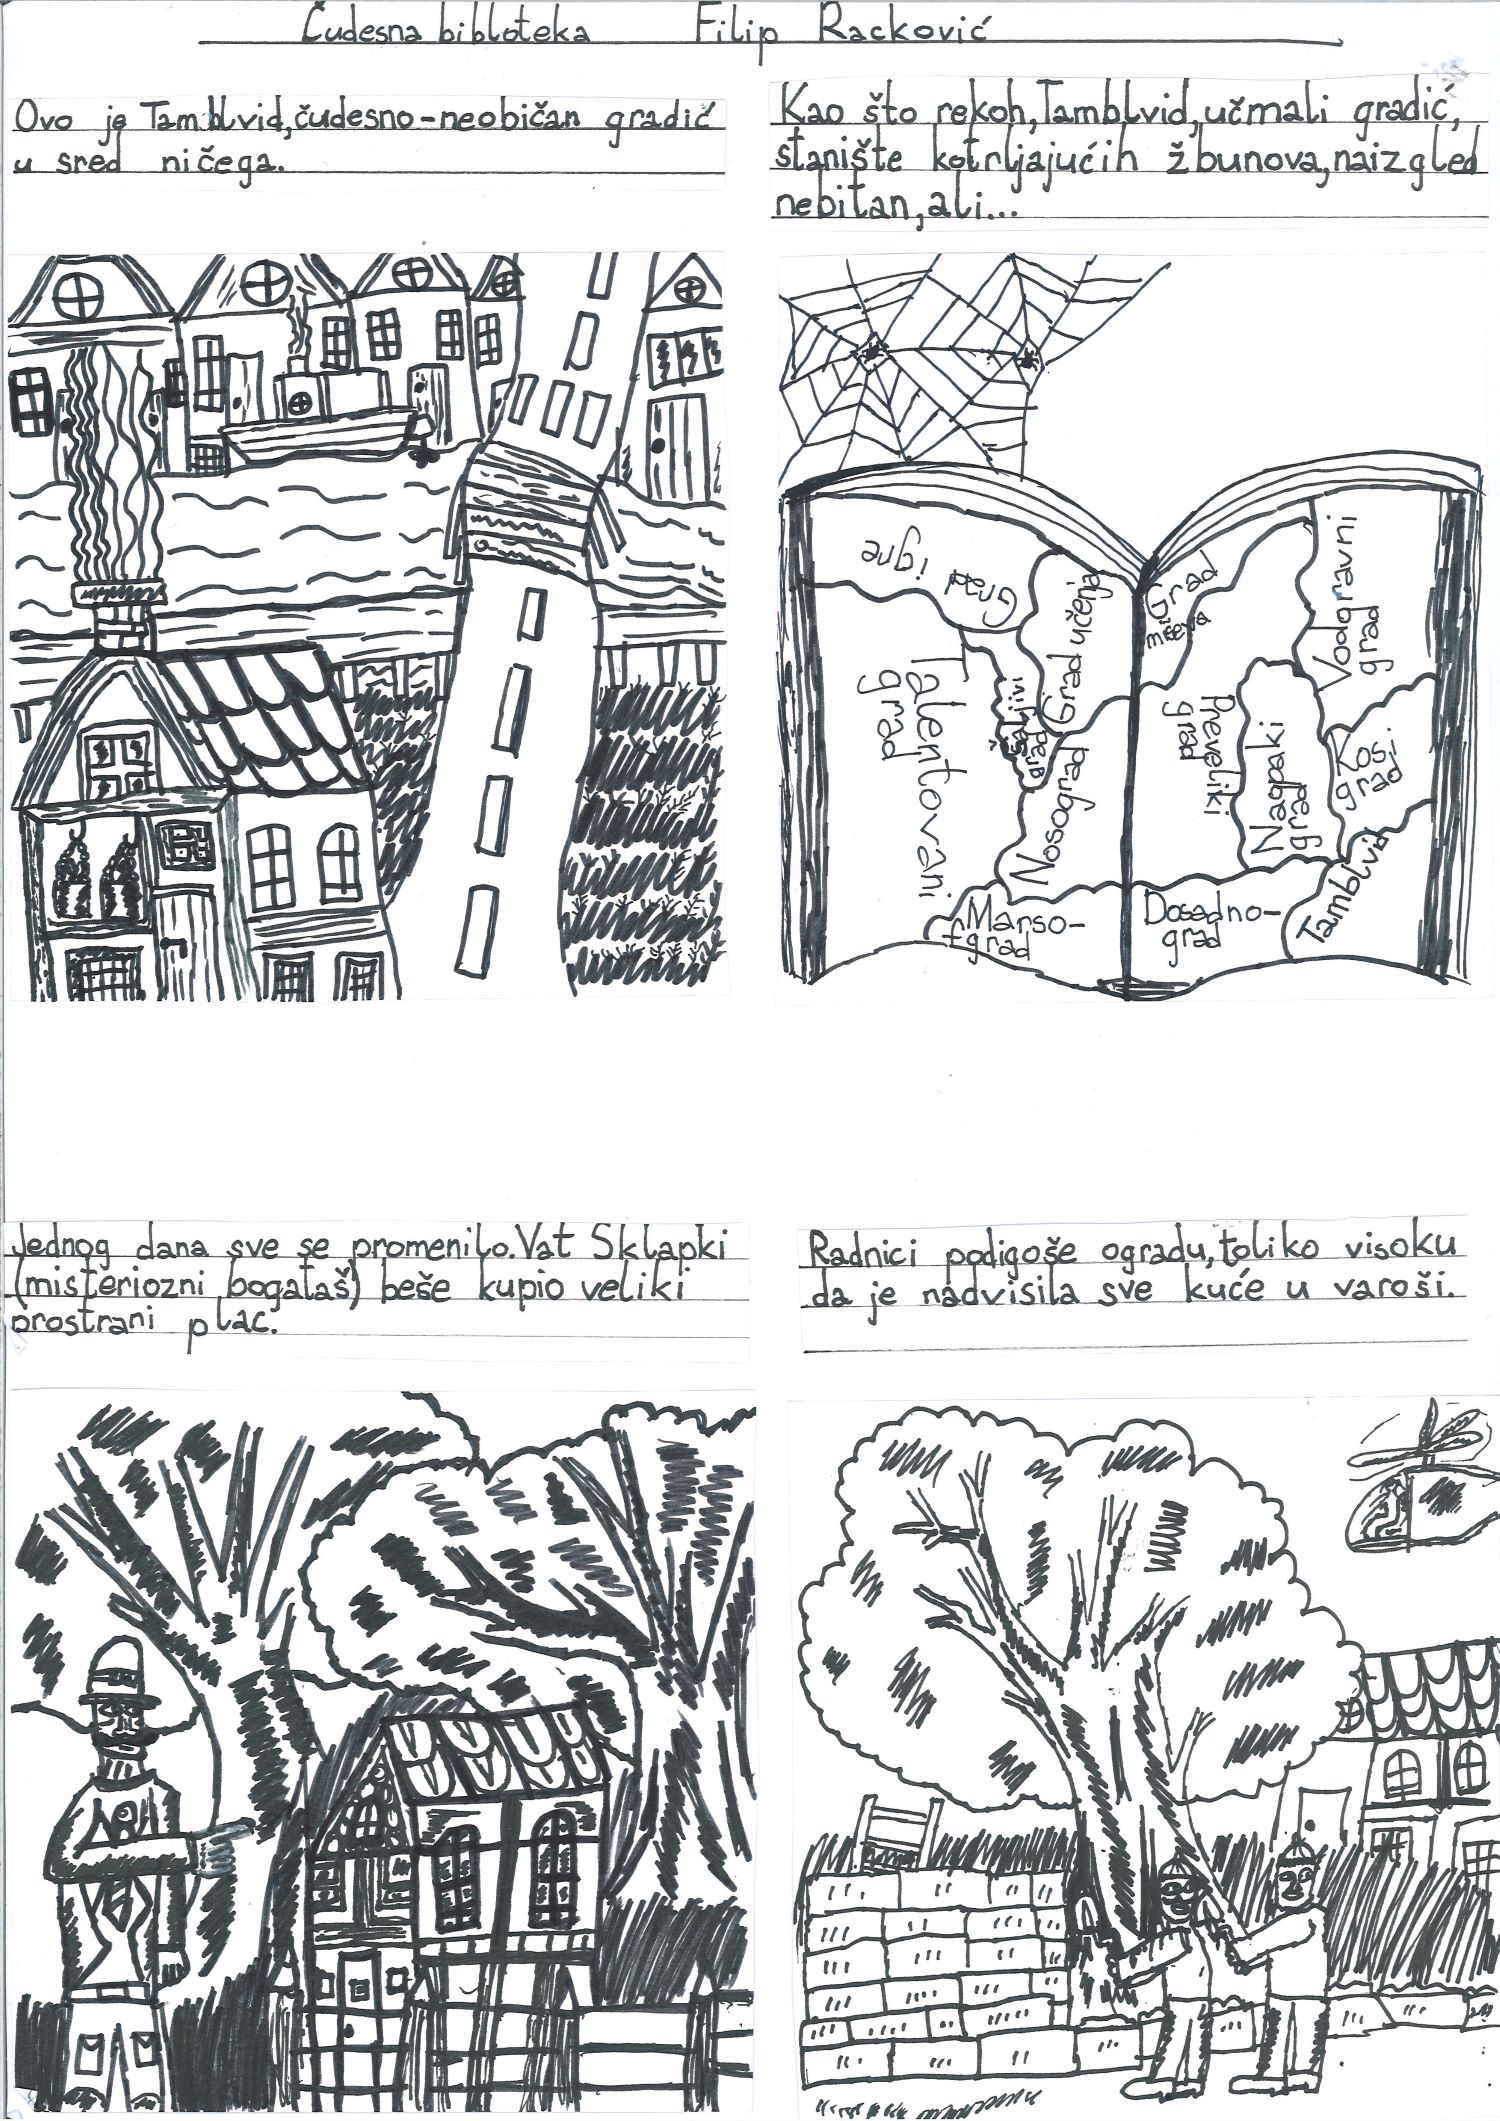 Čudesna bibloteka Filip Racković
Ovo je Tamblvid,čudesno-neobičan gradić
u sred ničega.
Kao što rekoh,Tamblvid,učmali gradić,
stanište kotrljajućih žbunova,naizgled
nebitan,ali...
Grad igre
Grad učenja
Talentovani
grad
Šaljivi
grad
Nosograd
Marso-
grad
Grad
mrceva
Vodoravni
grad
Preveliki
grad
Naopaki
grad
grad
Dosadno-
grad
Tamblvid
Jednog dana sve se promenilo.Vat Sklapki
(misteriozni bogataš) beše kupio veliki
prostrani plac.
Radnici podigoše ogradu,toliko visoku
da je nadvisila sve kuće u varoši.